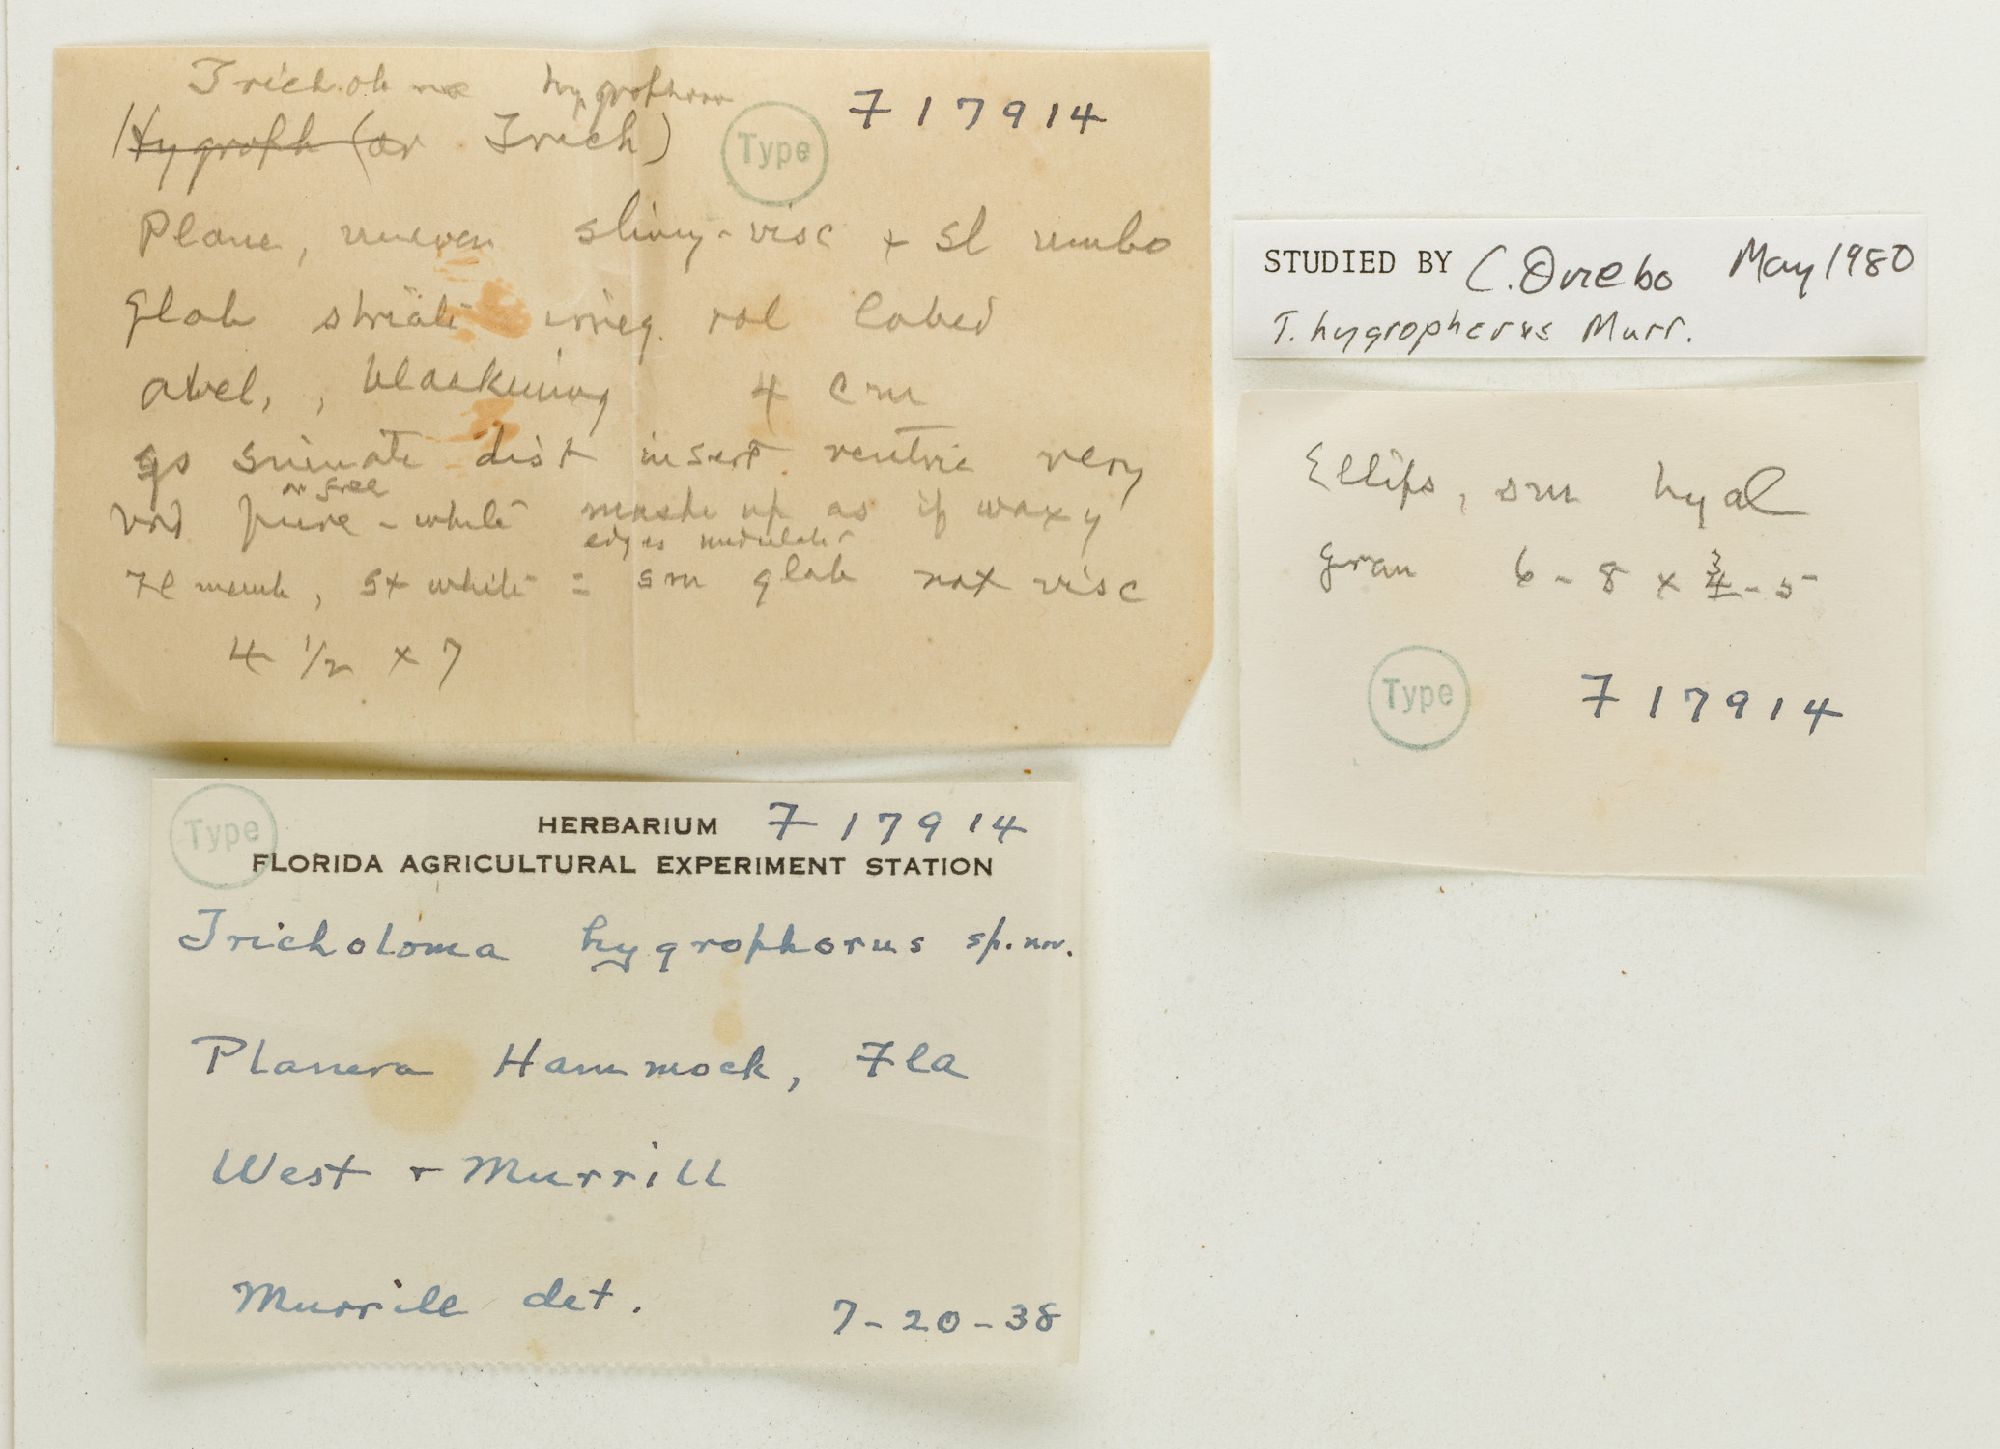 Tricholoma hygrophorus
F 17914
Hygroph (or Trich)
Type
Plane, uneven slimy-visc + sl umbo
glab striate irreg. rad lobed
avel, , blackening 4 cm
gs sinuate dist insert ventric very
or free
brd pure-white mashe up as if waxy
edges undulate
Fl memb, st white = sm glab not visc
4 1/2 x 7
STUDIED BY C. Ovrebo May 1980
T. hygrophorus Murr.
Ellips, sm hyal
gran 6-8 x 4-5
3
Type
F 17914
Type
HERBARIUM F 17914
FLORIDA AGRICULTURAL EXPERIMENT STATION
Tricholoma hygrophorus sp. nov.
Planera Hammock, Fla
West + Murrill
Murrill det.
7-20-38